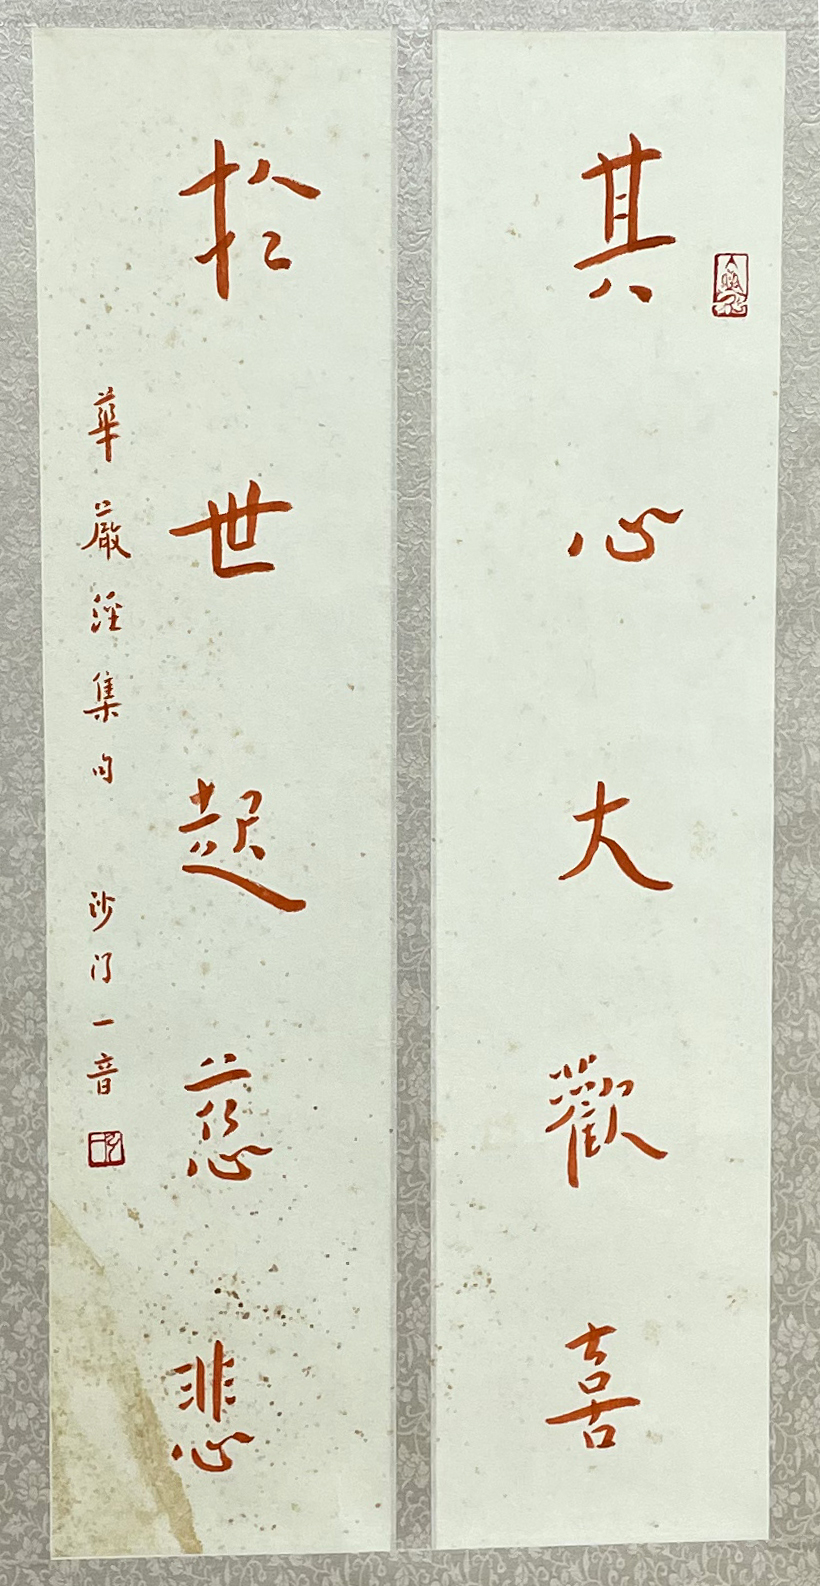 其心大歡喜
於世起慈悲
華嚴經集句 沙门一音